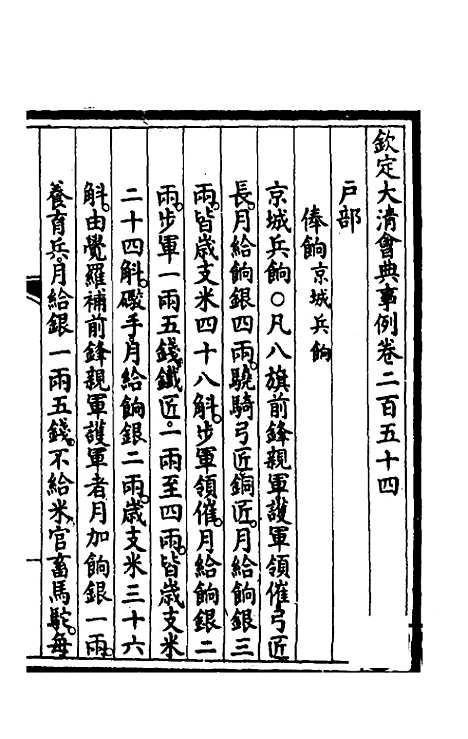 欽定大清會典事例卷二百五十四
戶部
俸餉京城兵餉
京城兵餉○凡八旗前鋒親軍護軍領催弓匠
長。月給餉銀四兩。驍騎弓匠銅匠。月給餉銀三
兩。皆歲支米四十八斛。步軍領催。月給餉銀二
兩。步軍一兩五錢。鐵匠。一兩至四兩。皆歲支米
二十四斛。礮手。月給餉銀二兩。歲支米三十六
斛。由覺羅補前鋒親軍護軍者。月加餉銀一兩。
養育兵。月給銀一兩五錢。不給米。官畜馬駝。每